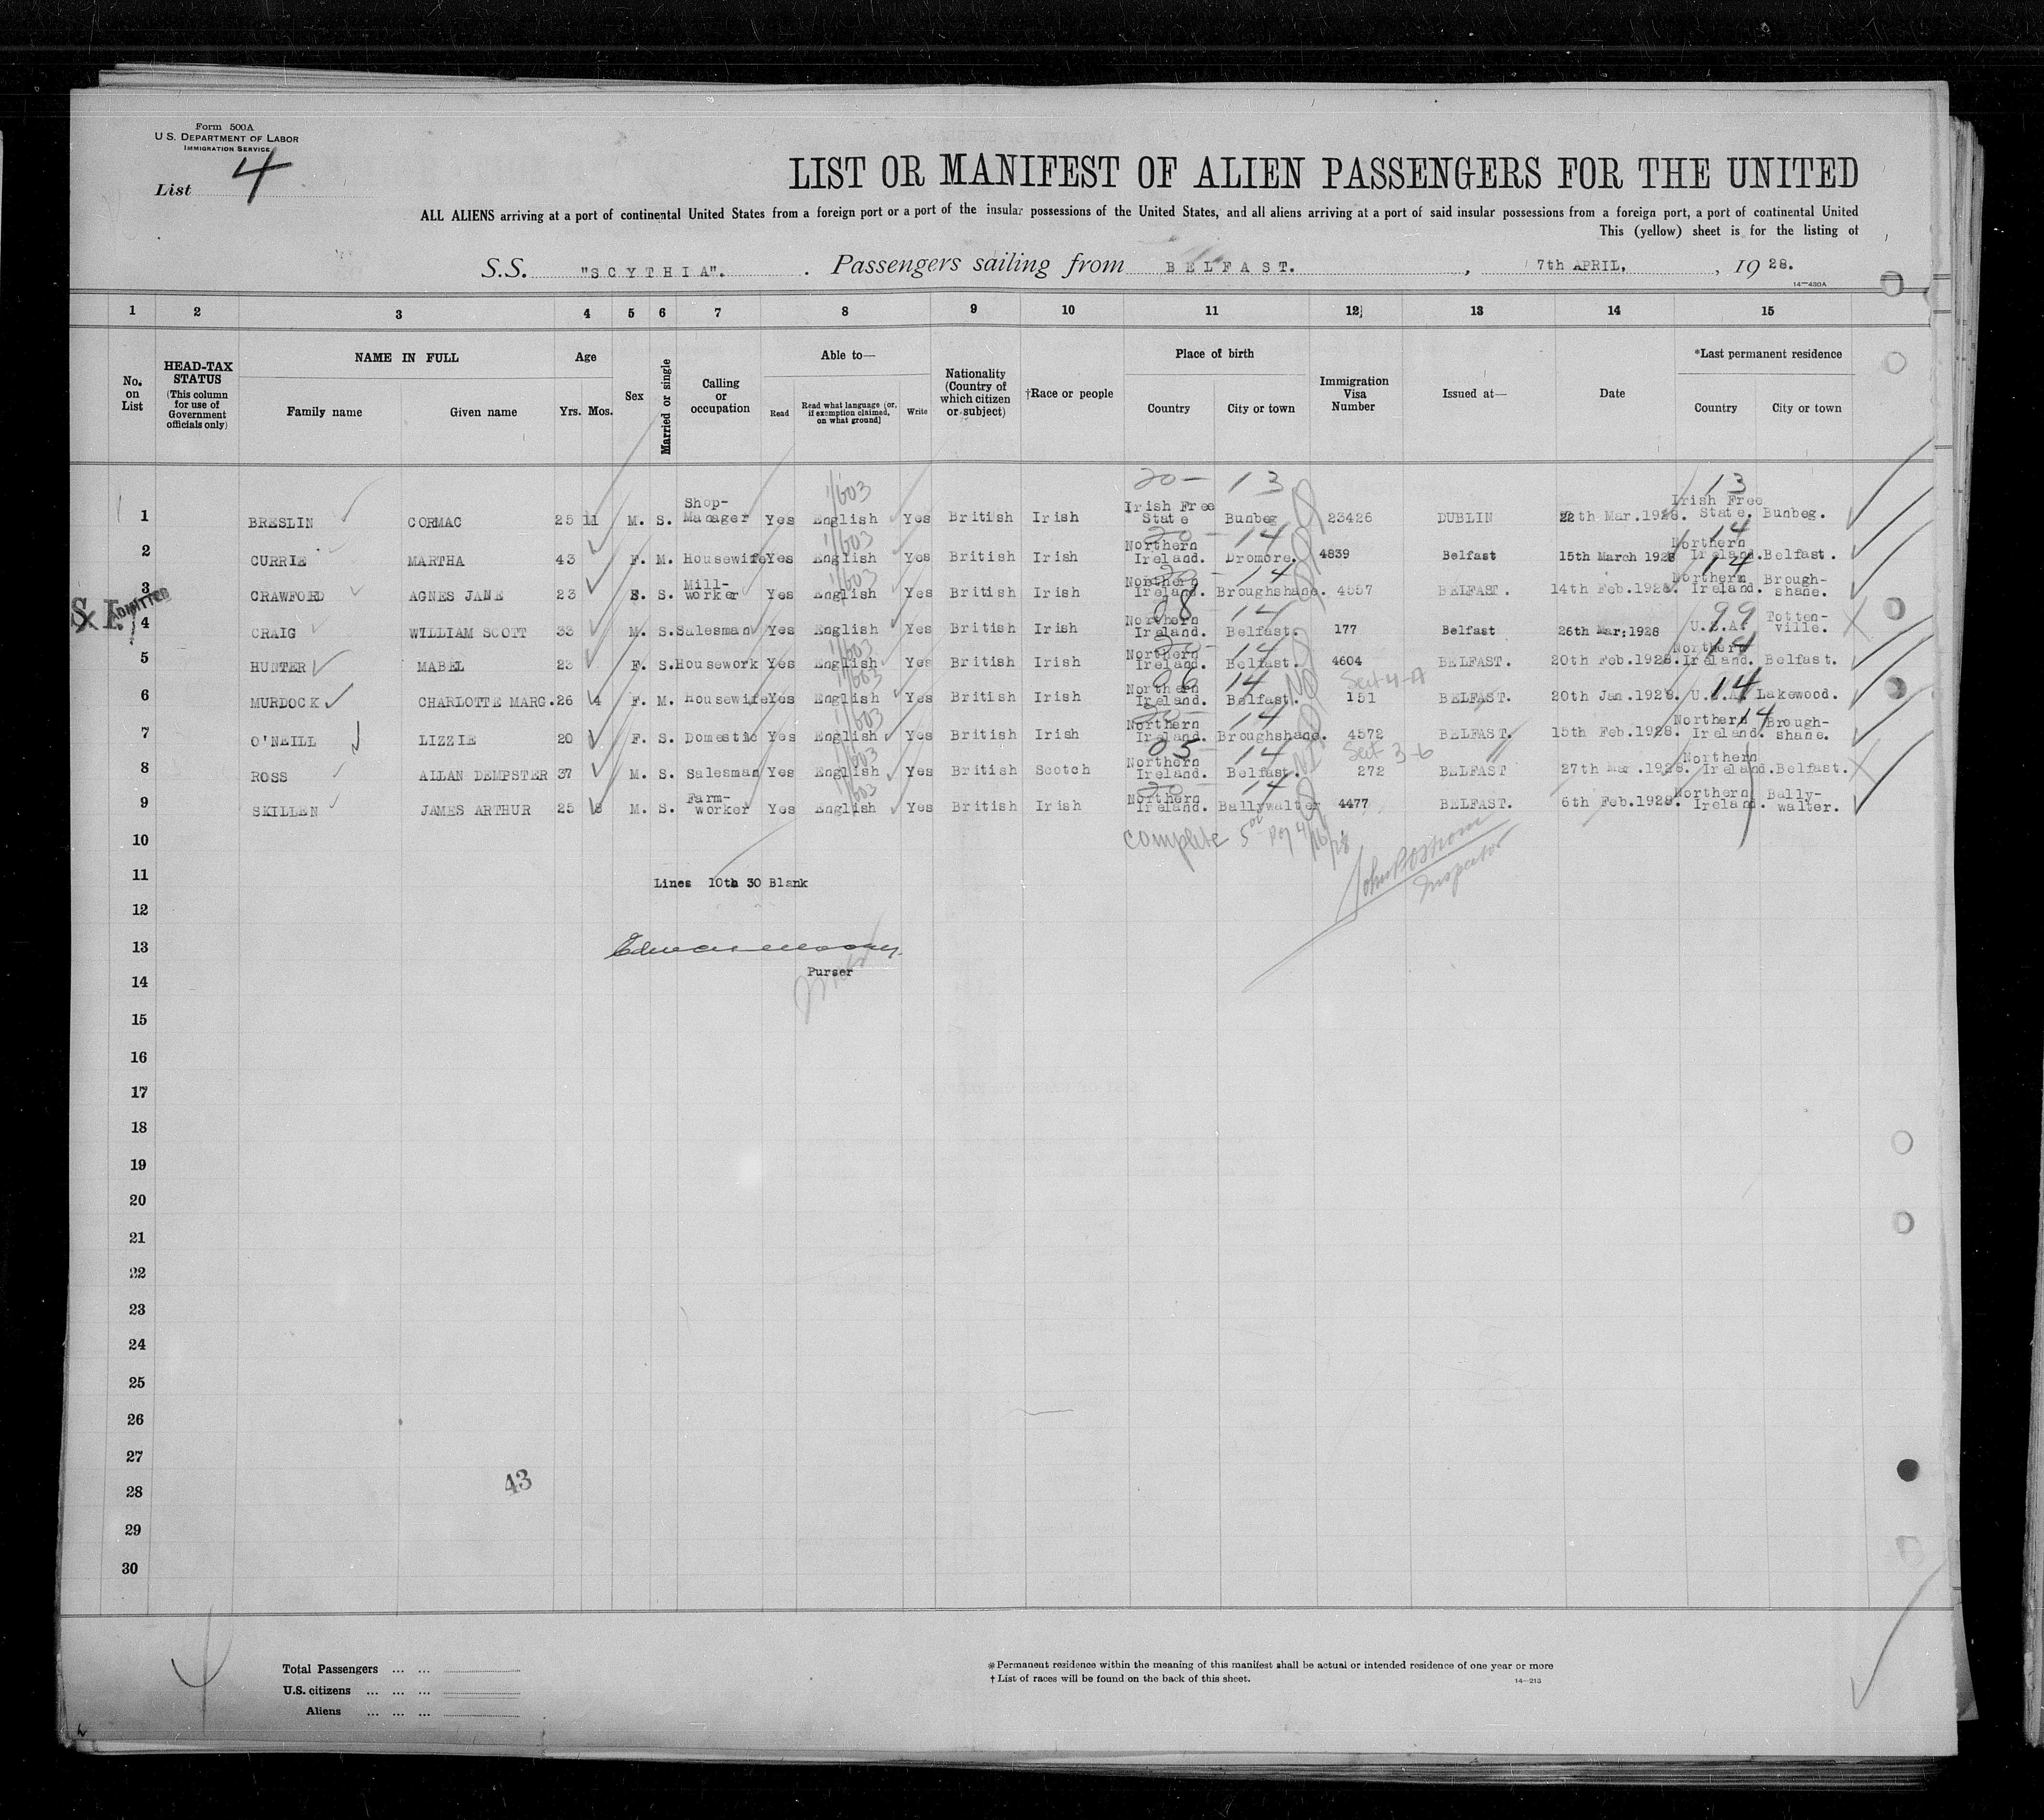 Form 500A
U.S. DEPARTMENT OF LABOR
IMMIGRATION SERVICE
List 4
LIST OR MANIFEST OF ALIEN PASSENGERS FOR THE UNITED
ALL ALIENS arriving at a port of continental United States from a foreign port or a port of the insular possessions of the United States, and all aliens arriving at a port of said insular possessions from a foreign port, a port of continental United
This (yellow) sheet is for the listing of
S.S. "SCYTHIA". Passengers sailing from BELFAST. , 7th APRIL, , 19 28.
14—430A
1 2 3 4 5 6 7 8 9 10 11 12 13 14 15
No. on List
HEAD-TAX STATUS (This column for use of Government officials only)
NAME IN FULL
Family name Given name
Age
Yrs. Mos.
Sex
Married or single
Calling or occupation
Able to—
Read Read what language (or, if exemption claimed, on what ground) Write
Nationality (Country of which citizen or subject)
†Race or people
Place of birth
Country City or town
Immigration Visa Number
Issued at—
Date
*Last permanent residence
Country City or town
20 - 13 13
1 BRESLIN CORMAC 25 11 M. S. Shop-Manager Yes English Yes British Irish Irish Free State Bunbeg 23426 DUBLIN 22th Mar.1928. Irish Free State. Bunbeg.
20 - 14 14
2 CURRIE MARTHA 43 F. M. Housewife Yes English Yes British Irish Northern Ireland. Dromore. 4839 Belfast 15th March 1928 Northern Ireland. Belfast.
20 - 14 14
3 CRAWFORD AGNES JANE 23 F. S. Mill-worker Yes English Yes British Irish Northern Ireland. Broughshane. 4557 BELFAST. 14th Feb.1928. Northern Ireland. Brough-shane.
S.I. ADMITTED
08 - 14 99
4 CRAIG WILLIAM SCOTT 33 M. S. Salesman Yes English Yes British Irish Northern Ireland. Belfast. 177 Belfast 26th Mar:1928 U.S.A. Totten-ville.
20 - 14 14
5 HUNTER MABEL 23 F. S. Housework Yes English Yes British Irish Northern Ireland. Belfast. 4604 BELFAST. 20th Feb.1928. Northern Ireland. Belfast.
06 14 NO Sect 4-A 14
6 MURDOCK CHARLOTTE MARG. 26 4 F. M. Housewife Yes English Yes British Irish Northern Ireland. Belfast. 151 BELFAST. 20th Jan.1928. U.S.A. Lakewood.
20 - 14 14
7 O'NEILL LIZZIE 20 F. S. Domestic Yes English Yes British Irish Northern Ireland. Broughshane. 4572 BELFAST. 15th Feb.1928. Northern Ireland. Brough-shane.
05 - 14 Sect 3-6
8 ROSS ALLAN DEMPSTER 37 M. S. Salesman Yes English Yes British Scotch Northern Ireland. Belfast. 272 BELFAST 27th Mar.1928. Northern Ireland. Belfast.
20 - 14
9 SKILLEN JAMES ARTHUR 25 8 M. S. Farm-worker Yes English Yes British Irish Northern Ireland. Ballywalter 4477 BELFAST. 6th Feb.1928. Northern Ireland. Bally-walter.
10 Complete 4/16/28
11 Lines 10to 30 Blank
Inspector
12
13
Purser
14
15
16
17
18
19
20
21
22
23
24
25
26
27
43
28
29
30
Total Passengers ... ...
U.S. citizens ... ... ...
Aliens ... ... ...
*Permanent residence within the meaning of this manifest shall be actual or intended residence of one year or more
†List of races will be found on the back of this sheet.
14—213